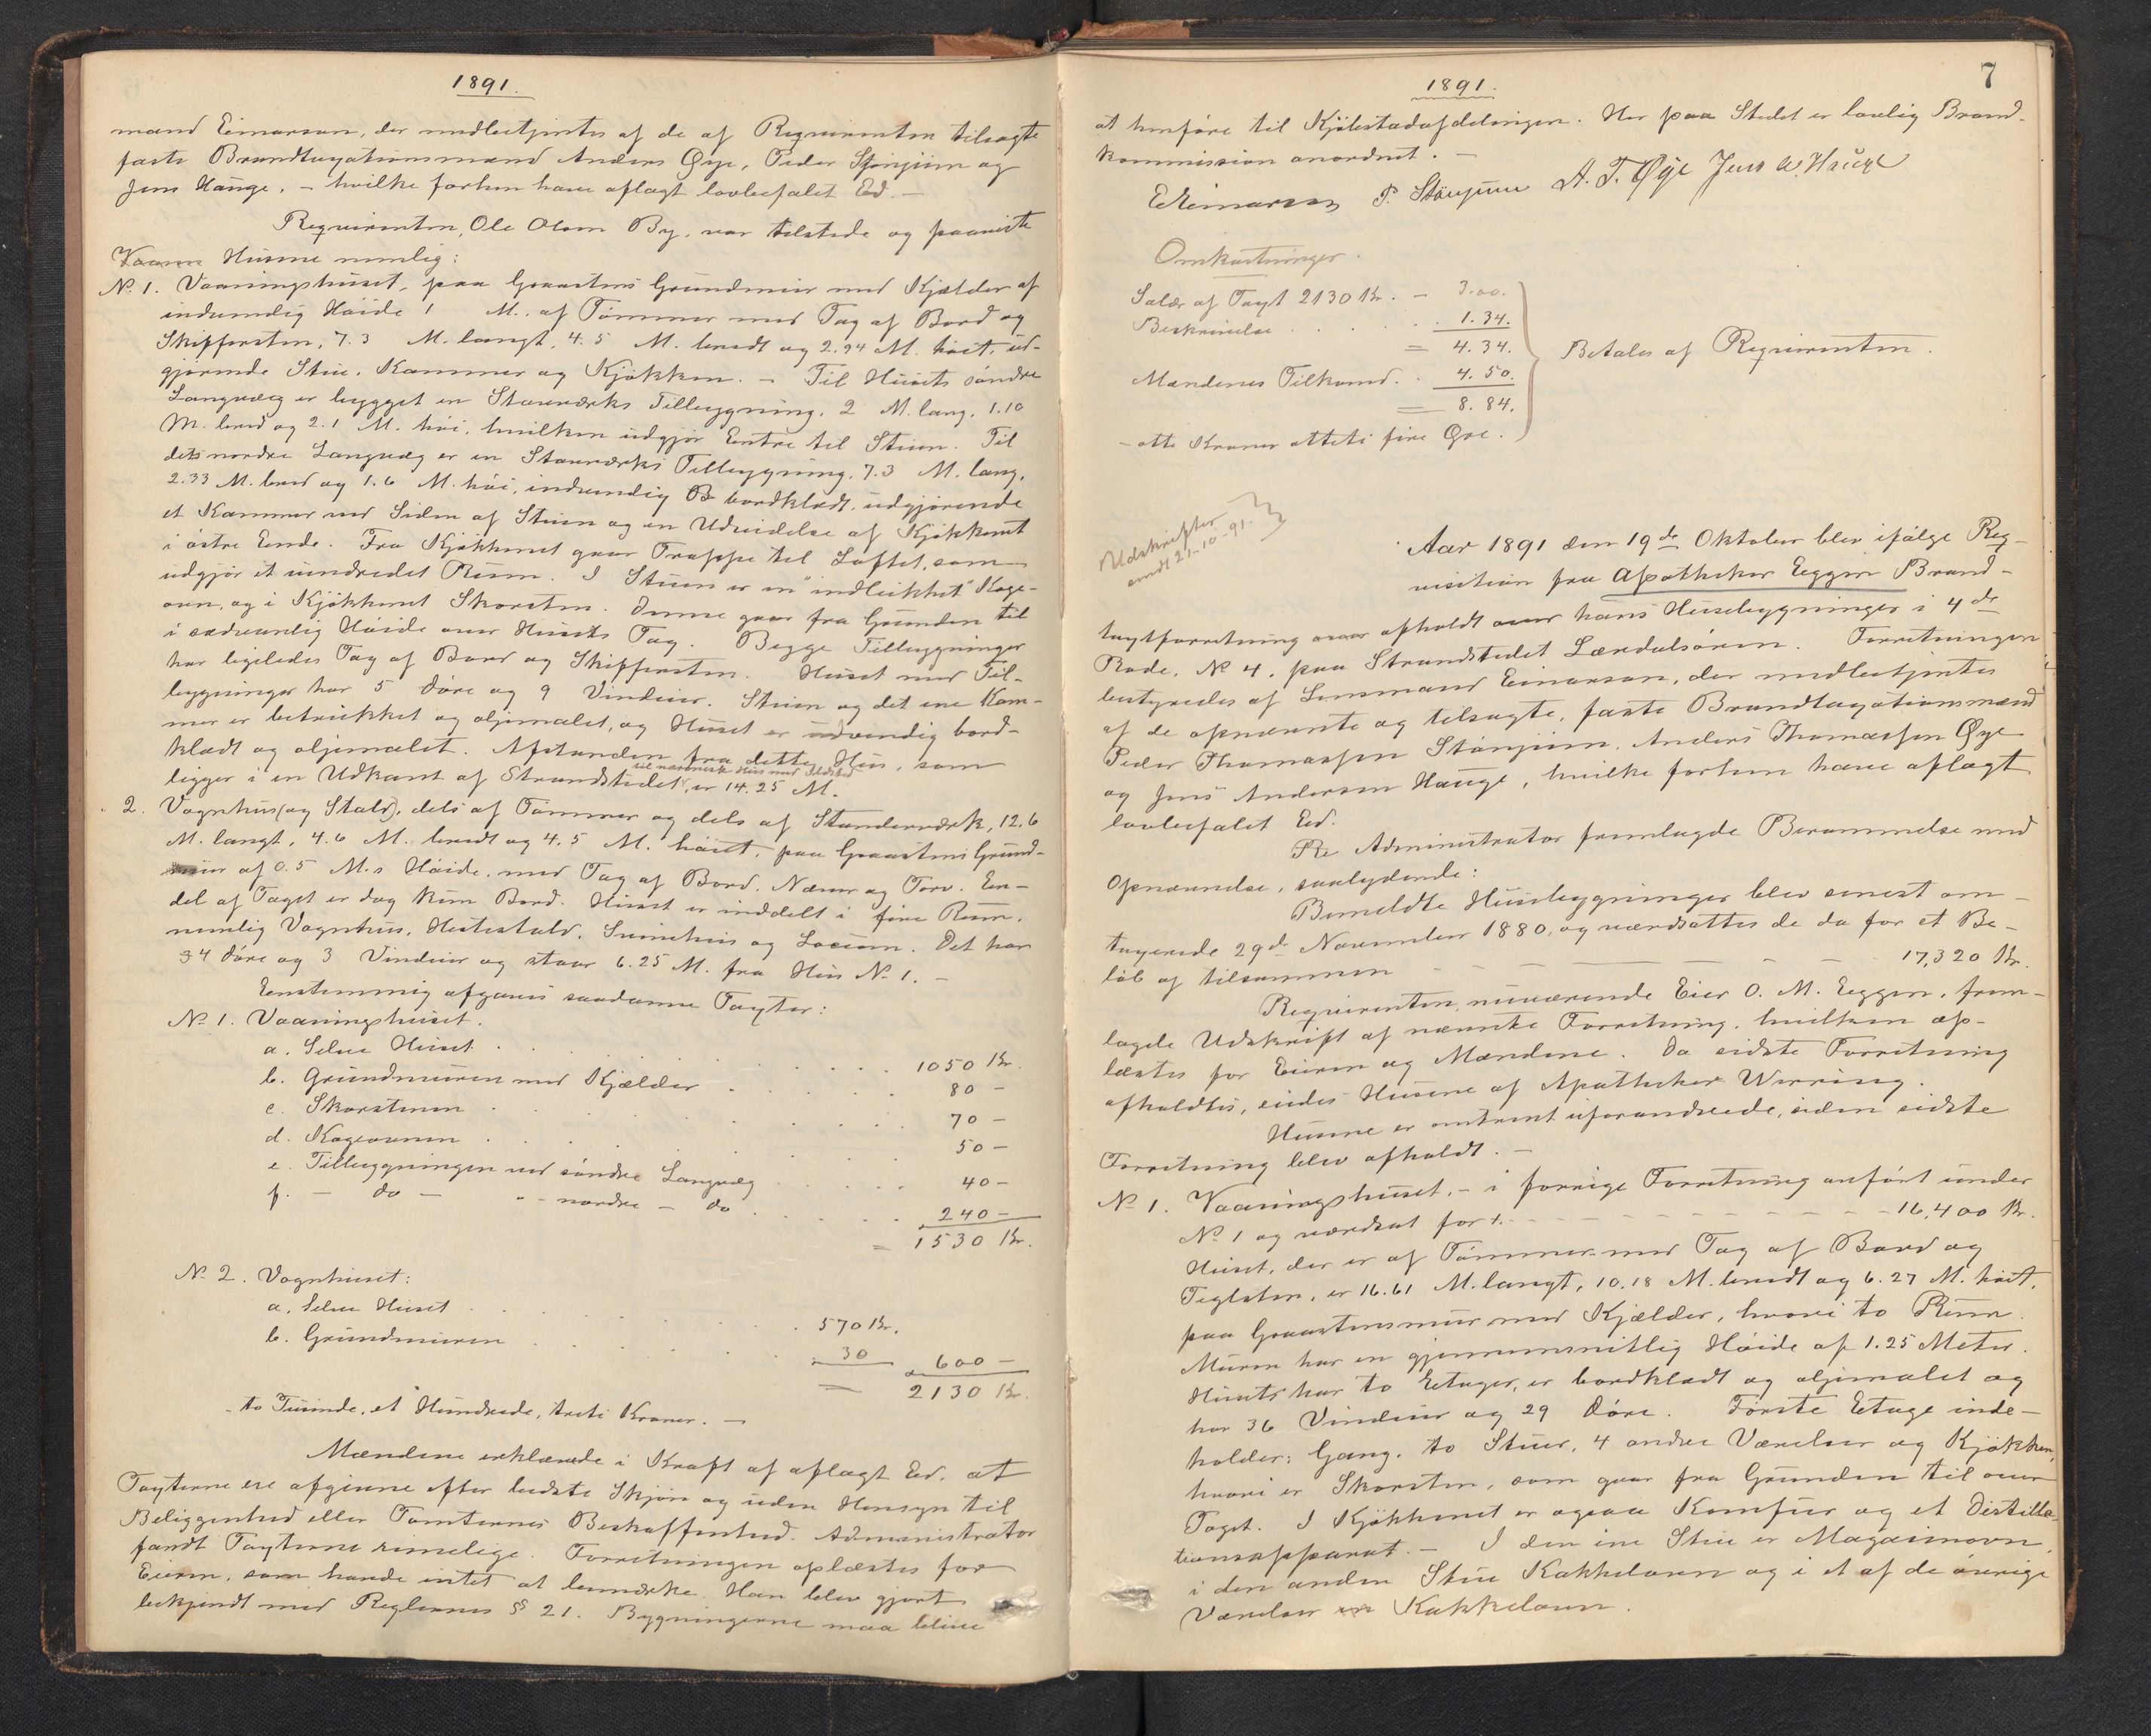 1891.
mand Einarson, der medbetjentes af de af Requirenten tilsagte
faste Brandtaxationsmænd Anders Øye, Peder Stønjum og
Jens Hauge, - hvilke forhen have aflagt lovbefalet Ed. -
Requirenten, Ole Olsen By, var tilstede og paaviste
Vaanin Husene nemlig:
No. 1. Vaaningshuset, paa Graastens Grundmur med Kjælder af
indvendig Høide 1 M., af Tømmer med Tag af Bord og
Skiffersten, 7.3 M. langt, 4.5 M. bredt og 2.94 M. høit, ud-
gjørende Stue, Kammer og Kjøkken. - Til Husets søndre
Langvæg er bygget en Stavværks Tilbygning, 2 M. lang, 1.10
M. bred og 2.1 M. høi, hvilken udgjør Entre til Stuen. Til
dets nordre Langvæg er en Stavværks Tilbygning, 7.3 M. lang,
2.33 M. bred og 1.6 M. høi, indvendig B bordklædt, udgjørende
et Kammer ved Siden af Stuen og en Udvidelse af Kjøkkenet
i østre Ende. Fra Kjøkkenet gaar Trappe til Loftet, som
udgjør et uindredet Rum. I Stuen er en "indlukket" Koge-
ovn, og i Kjøkkenet Skorsten. Denne gaar fra Grunden til
i sædvanlig Høide over Husets Tag. Begge Tilbygninger
har ligeledes Tag af Bord og Skiffersten. Huset med Til-
bygninger har 5 Døre og 9 Vinduer. Stuen og det ene Kam-
mer er betrukket og oljemalet, og Huset er udvendig bord-
klædt og oljemalet. Afstanden fra dette Hus, som
til nærmeste Hus med Ildsted
ligger i en Udkant af Strandstedet, er 14.25 M.
2. Vognhus (og Stald), dels af Tømmer og dels af Stenderværk, 12.6
M. langt, 4.6 M. bredt og 4.5 M. høit, paa Graastens Grund-
mur af 0.5 M.s Høide, med Tag af Bord, Næver og Torv. En
del af Taget er dog kun Bord. Huset er inddelt i fire Rum,
nemlig Vognhus, Hestestald, Svinehus og Locum. Det har
3 4 Døre og 3 Vinduer og staar 6.25 M. fra Hus No. 1. -
Enstemmig afgaves saadanne Taxter:
No. 1. Vaaningshuset.
a. Selve Huset . . . . . 1050 Kr.
b. Grundmuren med Kjælder . . . . 80 -
c. Skorstenen . . . . . 70 -
d. Kogeovnen . . . . . 50 -
e. Tilbygningen ved søndre Langvæg . . . . 40 -
f. - do - " - nordre - do . . . . 240 -
= 1530 Kr.
No. 2. Vognhuset:
a. Selve Huset . . . . . 570 Kr.
b. Grundmuren . . . . . 30 600 -
= 2130 Kr.
- to Tusinde, et Hundrede, treti Kroner. -
Mændene erklærede i Kraft af aflagt Ed, at
Taxterne ere afgivne efter bedste Skjøn og uden Hensyn til
Beliggenhed eller Tomternes Beskaffenhed. Administrator
fandt Taxterne rimelige. Forretningen oplæstes for
Eieren, som havde intet at bemærke. Han blev gjort
bekjendt med Reglernes § 21. Bygningerne maa blive
7
1891.
at henføre til Kjøbstadafdelingen. Her paa Stedet er lovlig Brand-
kommission anordnet. -
E Einarson P. Stønjum A. T. Øye Jens A. Hauge
Omkostninger.
Salær af Taxt 2130 Kr. - 3.00.
Beskrivelse . . . . . 1.34.
= 4.34.
Mændenes Tilkomd. . 4.50.
= 8.84.
- otte Kroner otteti fire Øre.
Betales af Requirenten.
Udskrifter
sendt 21-10-91.
Aar 1891 den 19de Oktober blev ifølge Req-
visition fra Apotheker Eggen Brand-
taxtforretning afholdt over hans Husebygninger i 4de
Rode, No 4, paa Strandstedet Lærdalsøren. Forretningen
bestyredes af Lensmand Einarson, der medbetjentes
af de opnævnte og tilsagte, faste Brandtaxationsmænd
Peder Thomassen Stønjum, Anders Thomassen Øye
og Jens Andersen Hauge, hvilke forhen have aflagt
lovbefalet Ed.
Re Administrator fremlagde Berammelse med
Opnævnelse, saalydende:
Bemeldte Husebygninger blev senest om-
taxerede 29de November 1880, og værdsattes de da for et Be-
løb af tilsammen - - - - - 17,320 Kr.
Requirenten, nuværende Eier O. M. Eggen, frem-
lagde Udskrift af nævnte Forretning, hvilken op-
læstes for Eieren og Mændene. Da sidste Forretning
afholdtes, eiedes Husene af Apotheker Werring.
Husene er omtrent uforandrede, siden sidste
Forretning blev afholdt. -
No 1. Vaaningshuset, - i forrige Forretning anført under
No 1 og værdsat for - - - - - 16,400 Kr.
Huset, der er af Tømmer med Tag af Bord og
Teglsten, er 16.61 M. langt, 10.18 M. bredt og 6.27 M. høit,
paa Graastensmur med Kjælder, hvori to Rum.
Muren har en gjennemsnitlig Høide af 1.25 Meter.
Husets har to Etager, er bordklædt og oljemalet og
har 36 Vinduer og 29 Døre. Første Etage inde-
holder: Gang, to Stuer, 4 andre Værelser og Kjøkken,
hvori er Skorsten, som gaar fra Grunden til over
Taget. I Kjøkkenet er ogsaa Komfur og et Distilla-
tionsapparat. - I den ene Stue er Magasinovn,
i den anden Stue Kakkelovn og i et af de øvrige
Værelser en Kakkelovn.